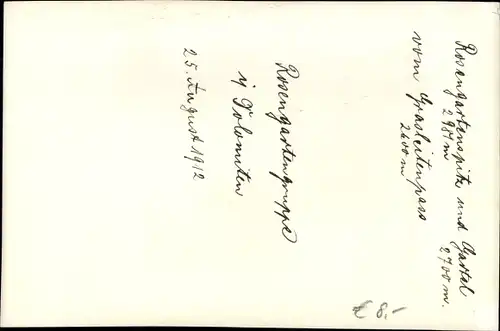 Rosengartenspitz und Gartel
2981m 2700m.
vom Grasleitenpass
2600m
Rosengartengruppe
i/ Dolomiten
25. August 1912
€ 8.-